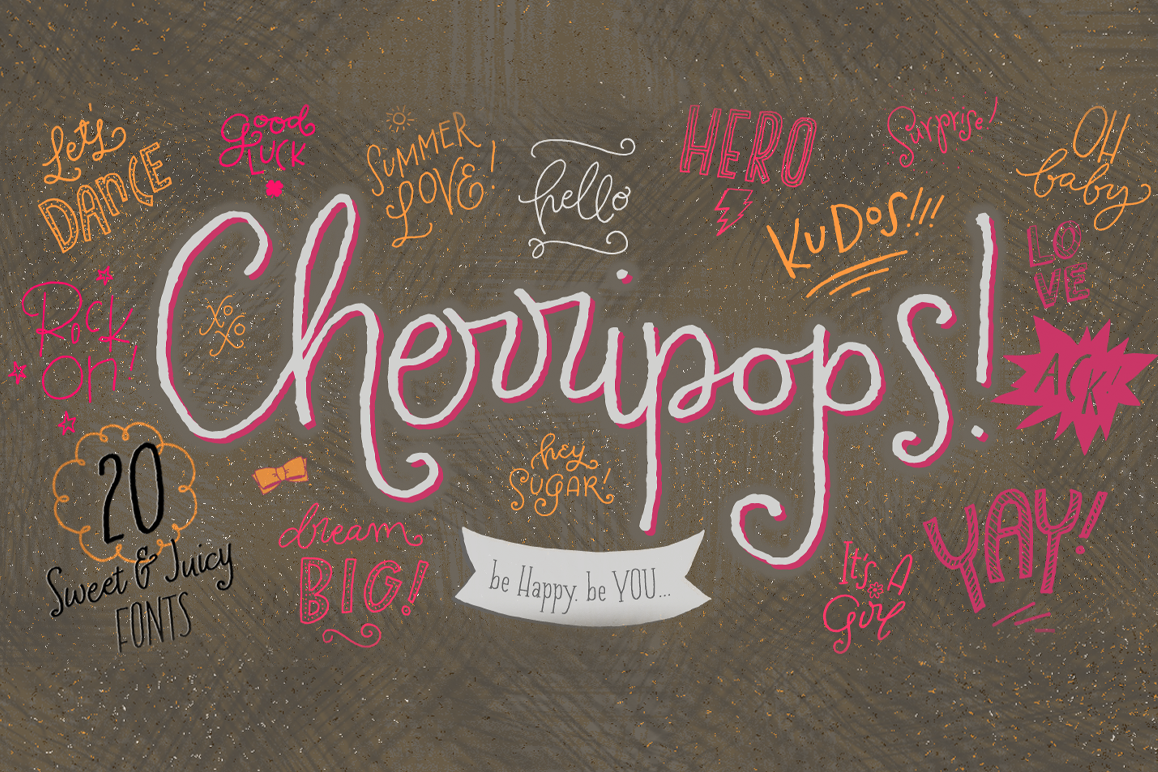 Let's
DANCE
Good
LUCK
SUMMER
LOVE!
hello
HERO
Surprise!
OH
baby
KUDOS!!!
LO
VE
Rock
On!
XO
XO
Cherripops!
ACK!
20
Sweet & Juicy
FONTS
hey
SUGAR!
dream
BIG!
be Happy. be YOU...
It's A
Girl
YAY!